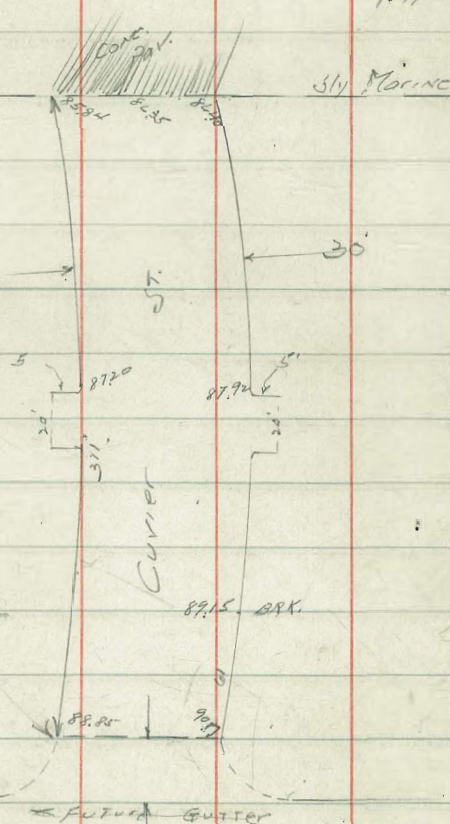 Conc.
Pav.
Sly Marine
85.84
86.35
86.40
30'
St.
5
87.20
87.92
5'
20'
20'
371.
Cuvier
89.15 BRK.
88.85
Future Gutter